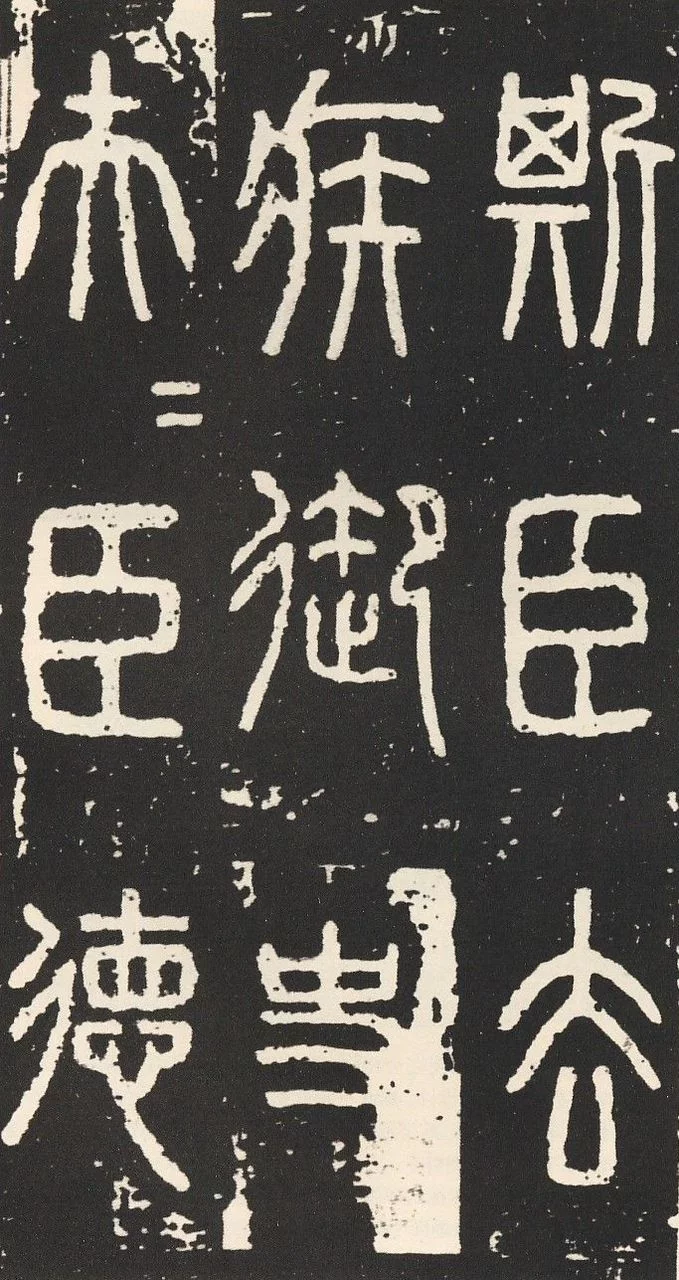 斯臣去
疾御史
夫＝臣德